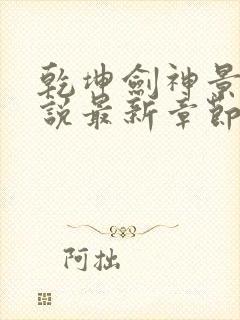 乾坤劍神景
說最新章節
阿拙